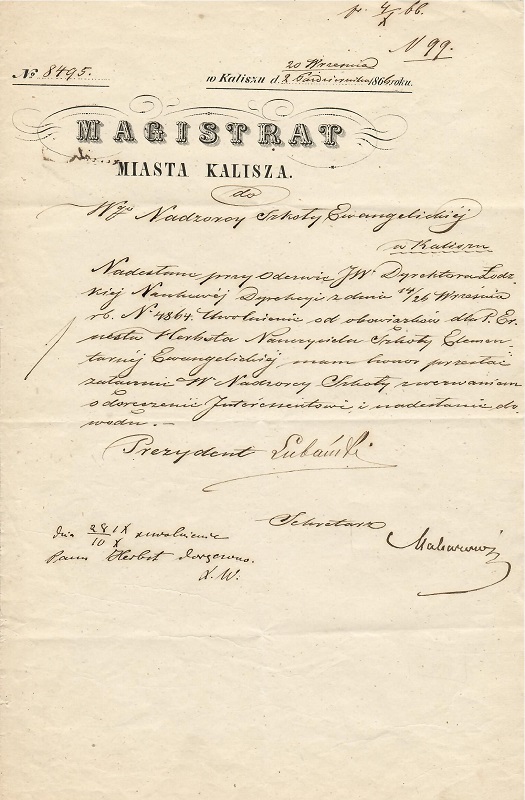 4/X 66.
N 99.
20 Września
No 8495.
w Kaliszu d. 2 Października 1866 roku.
MAGISTRAT
MIASTA KALISZA.
do
Wgo Nadzorcy Szkoły Ewangelickiéj
w Kaliszu
Nadesłane przy Odezwie JW Dyrektora Łodz
kiéj Naukowéj Dyrekcyi z dnia 14/26 Września
rb. N 4864. Uwolnienie od obowiązków dla P. Er
nesta Herbsta Nauczyciela Szkoły Elemen
tarnéj Ewangelickiéj mam honor przesłać
załącznie W Nadzorcy Szkoły z wezwaniem
o doręczenie Interesentowi i nadesłanie do
wodu. —
Prezydent Lubański
Sekretarz
Makarewicz
dnia 28 IX / 10 X uwolnienie
Panu Herbst doręczono.